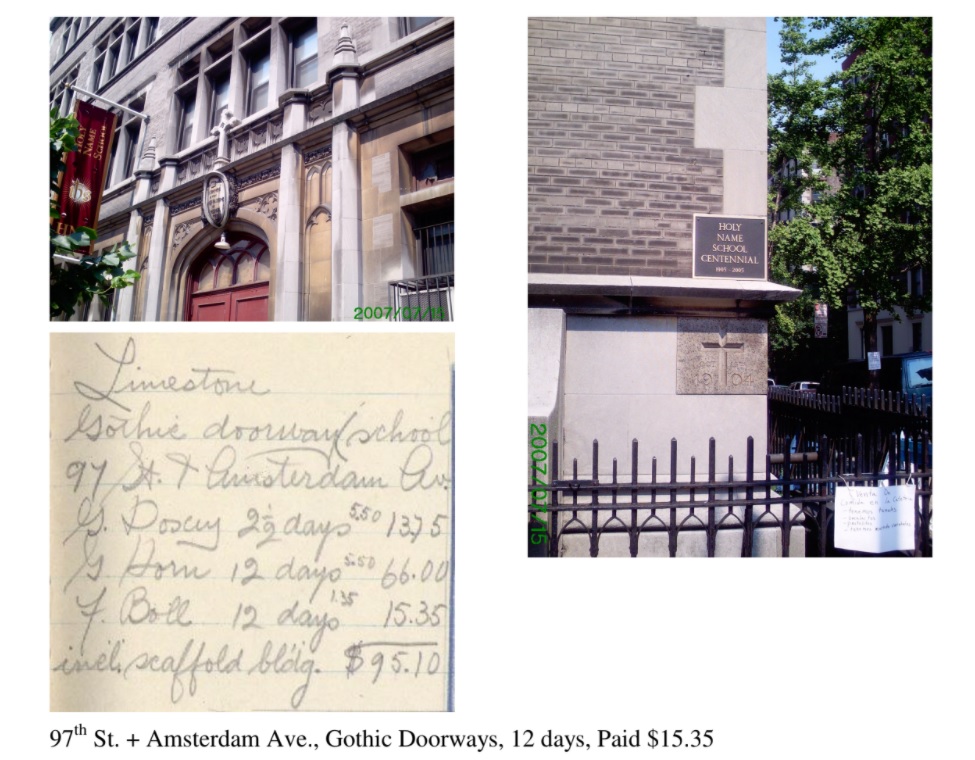 HOLY
NAME
SCHOOL
2007/07/15
Limestone
Gothic doorway (school
97 St. & Amsterdam Av.
G. Doscey 2½ days 5.50 13.75
G Horn 12 days 5.50 66.00
F. Boll 12 days 1.35 15.35
incl. scaffold bldg. $95.10
HOLY
NAME
SCHOOL
CENTENNIAL
1905-2005
1904
2007/07/15
97th St. + Amsterdam Ave., Gothic Doorways, 12 days, Paid $15.35